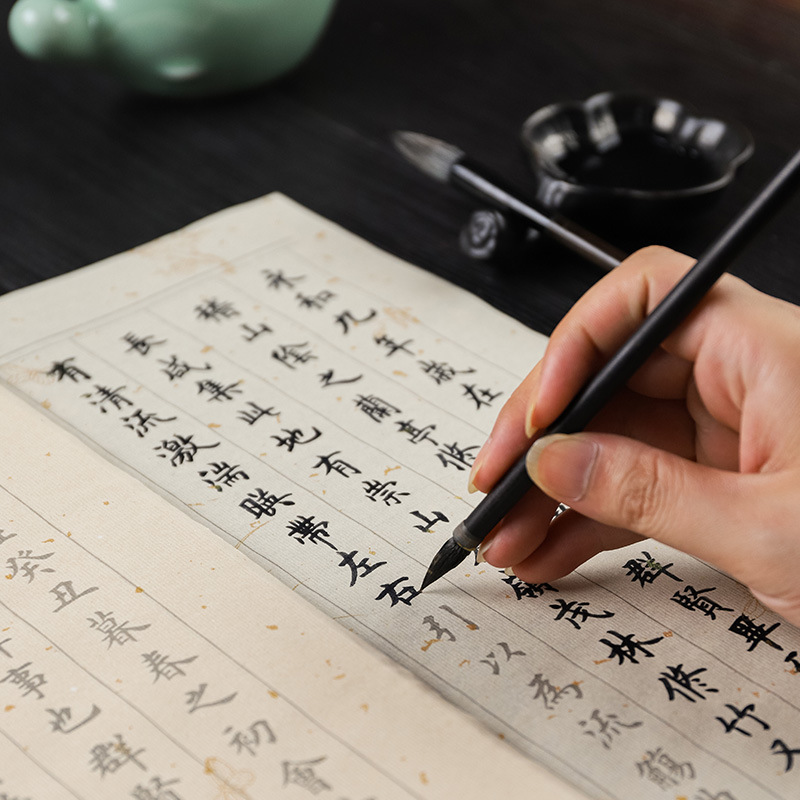 永和九年歲在
稽山陰之蘭亭脩 群賢畢
長咸集此地有崇山 茂林脩竹又
有清流激湍暎帶左右引以為流觴
癸丑暮春之初會
事也群賢